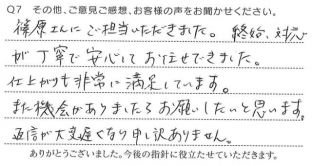 Q7 その他、ご意見ご感想、お客様の声をお聞かせください。
篠原さんにご担当いただきました。終始、対応
が丁寧で安心してお任せできました。
仕上がりも非常に満足しています。
また機会がありましたらお願いしたいと思います。
返信が大変遅くなり申し訳ありません。
ありがとうございました。今後の指針に役立たせていただきます。